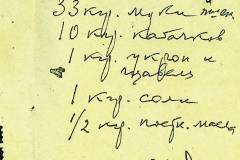 33 кгр. муки пшен.
10 кгр. кабачков
1 кгр. укроп и
щавель
1 кгр. соли
1/2 кгр. постн. масла